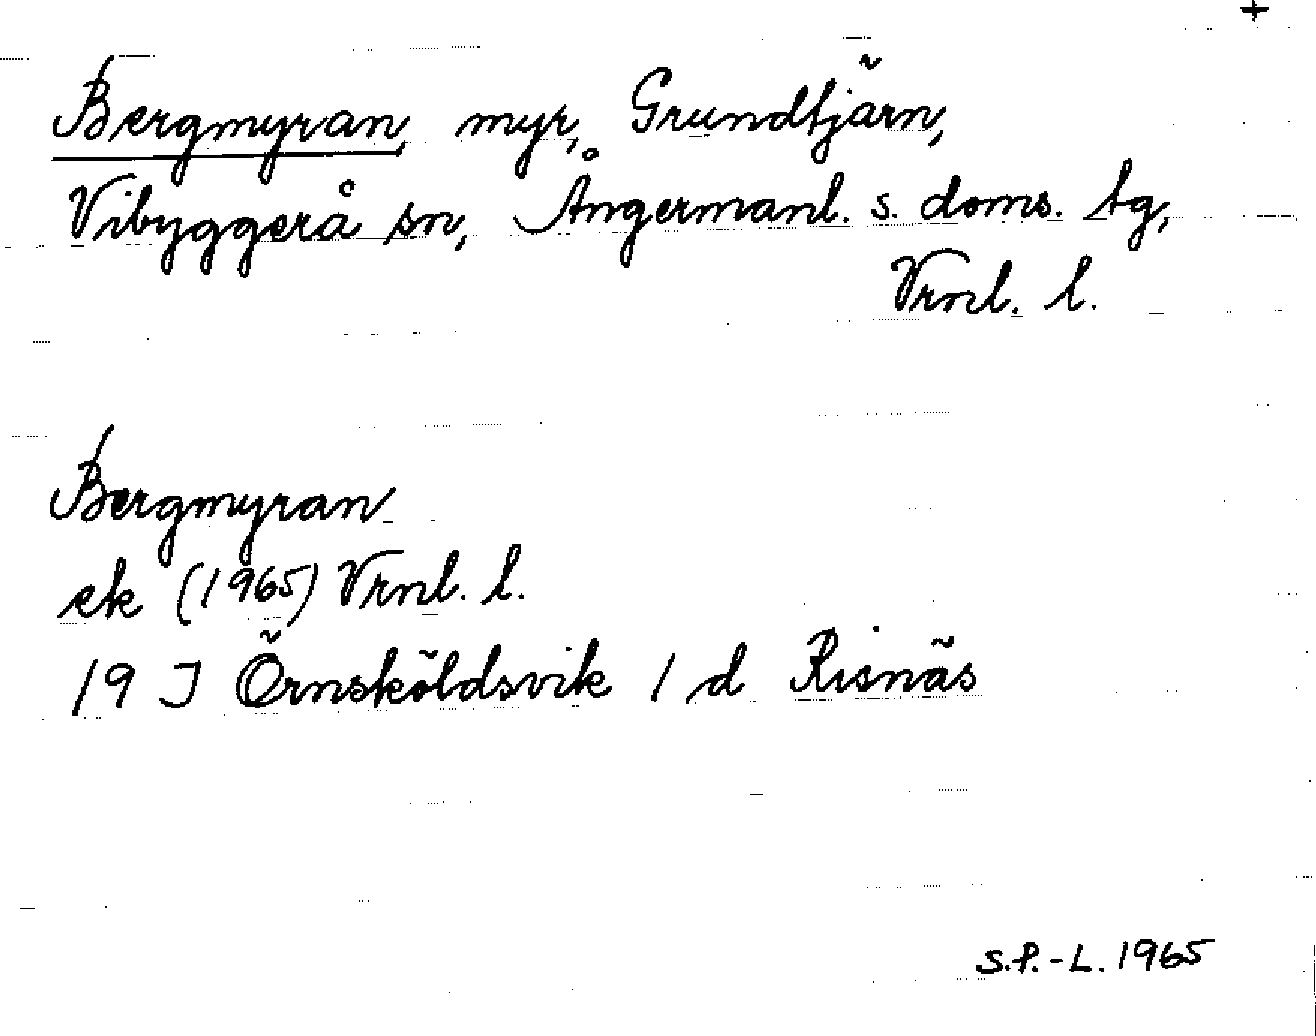 +
Bergmyran, myr, Grundtjärn,
Vibyggerå sn, Ångermanl. s. doms. tg,
Vrnl. l.
Bergmyran
ek (1965) Vrnl. l.
19 J Örnsköldsvik 1 d Risnäs
S.P.-L. 1965